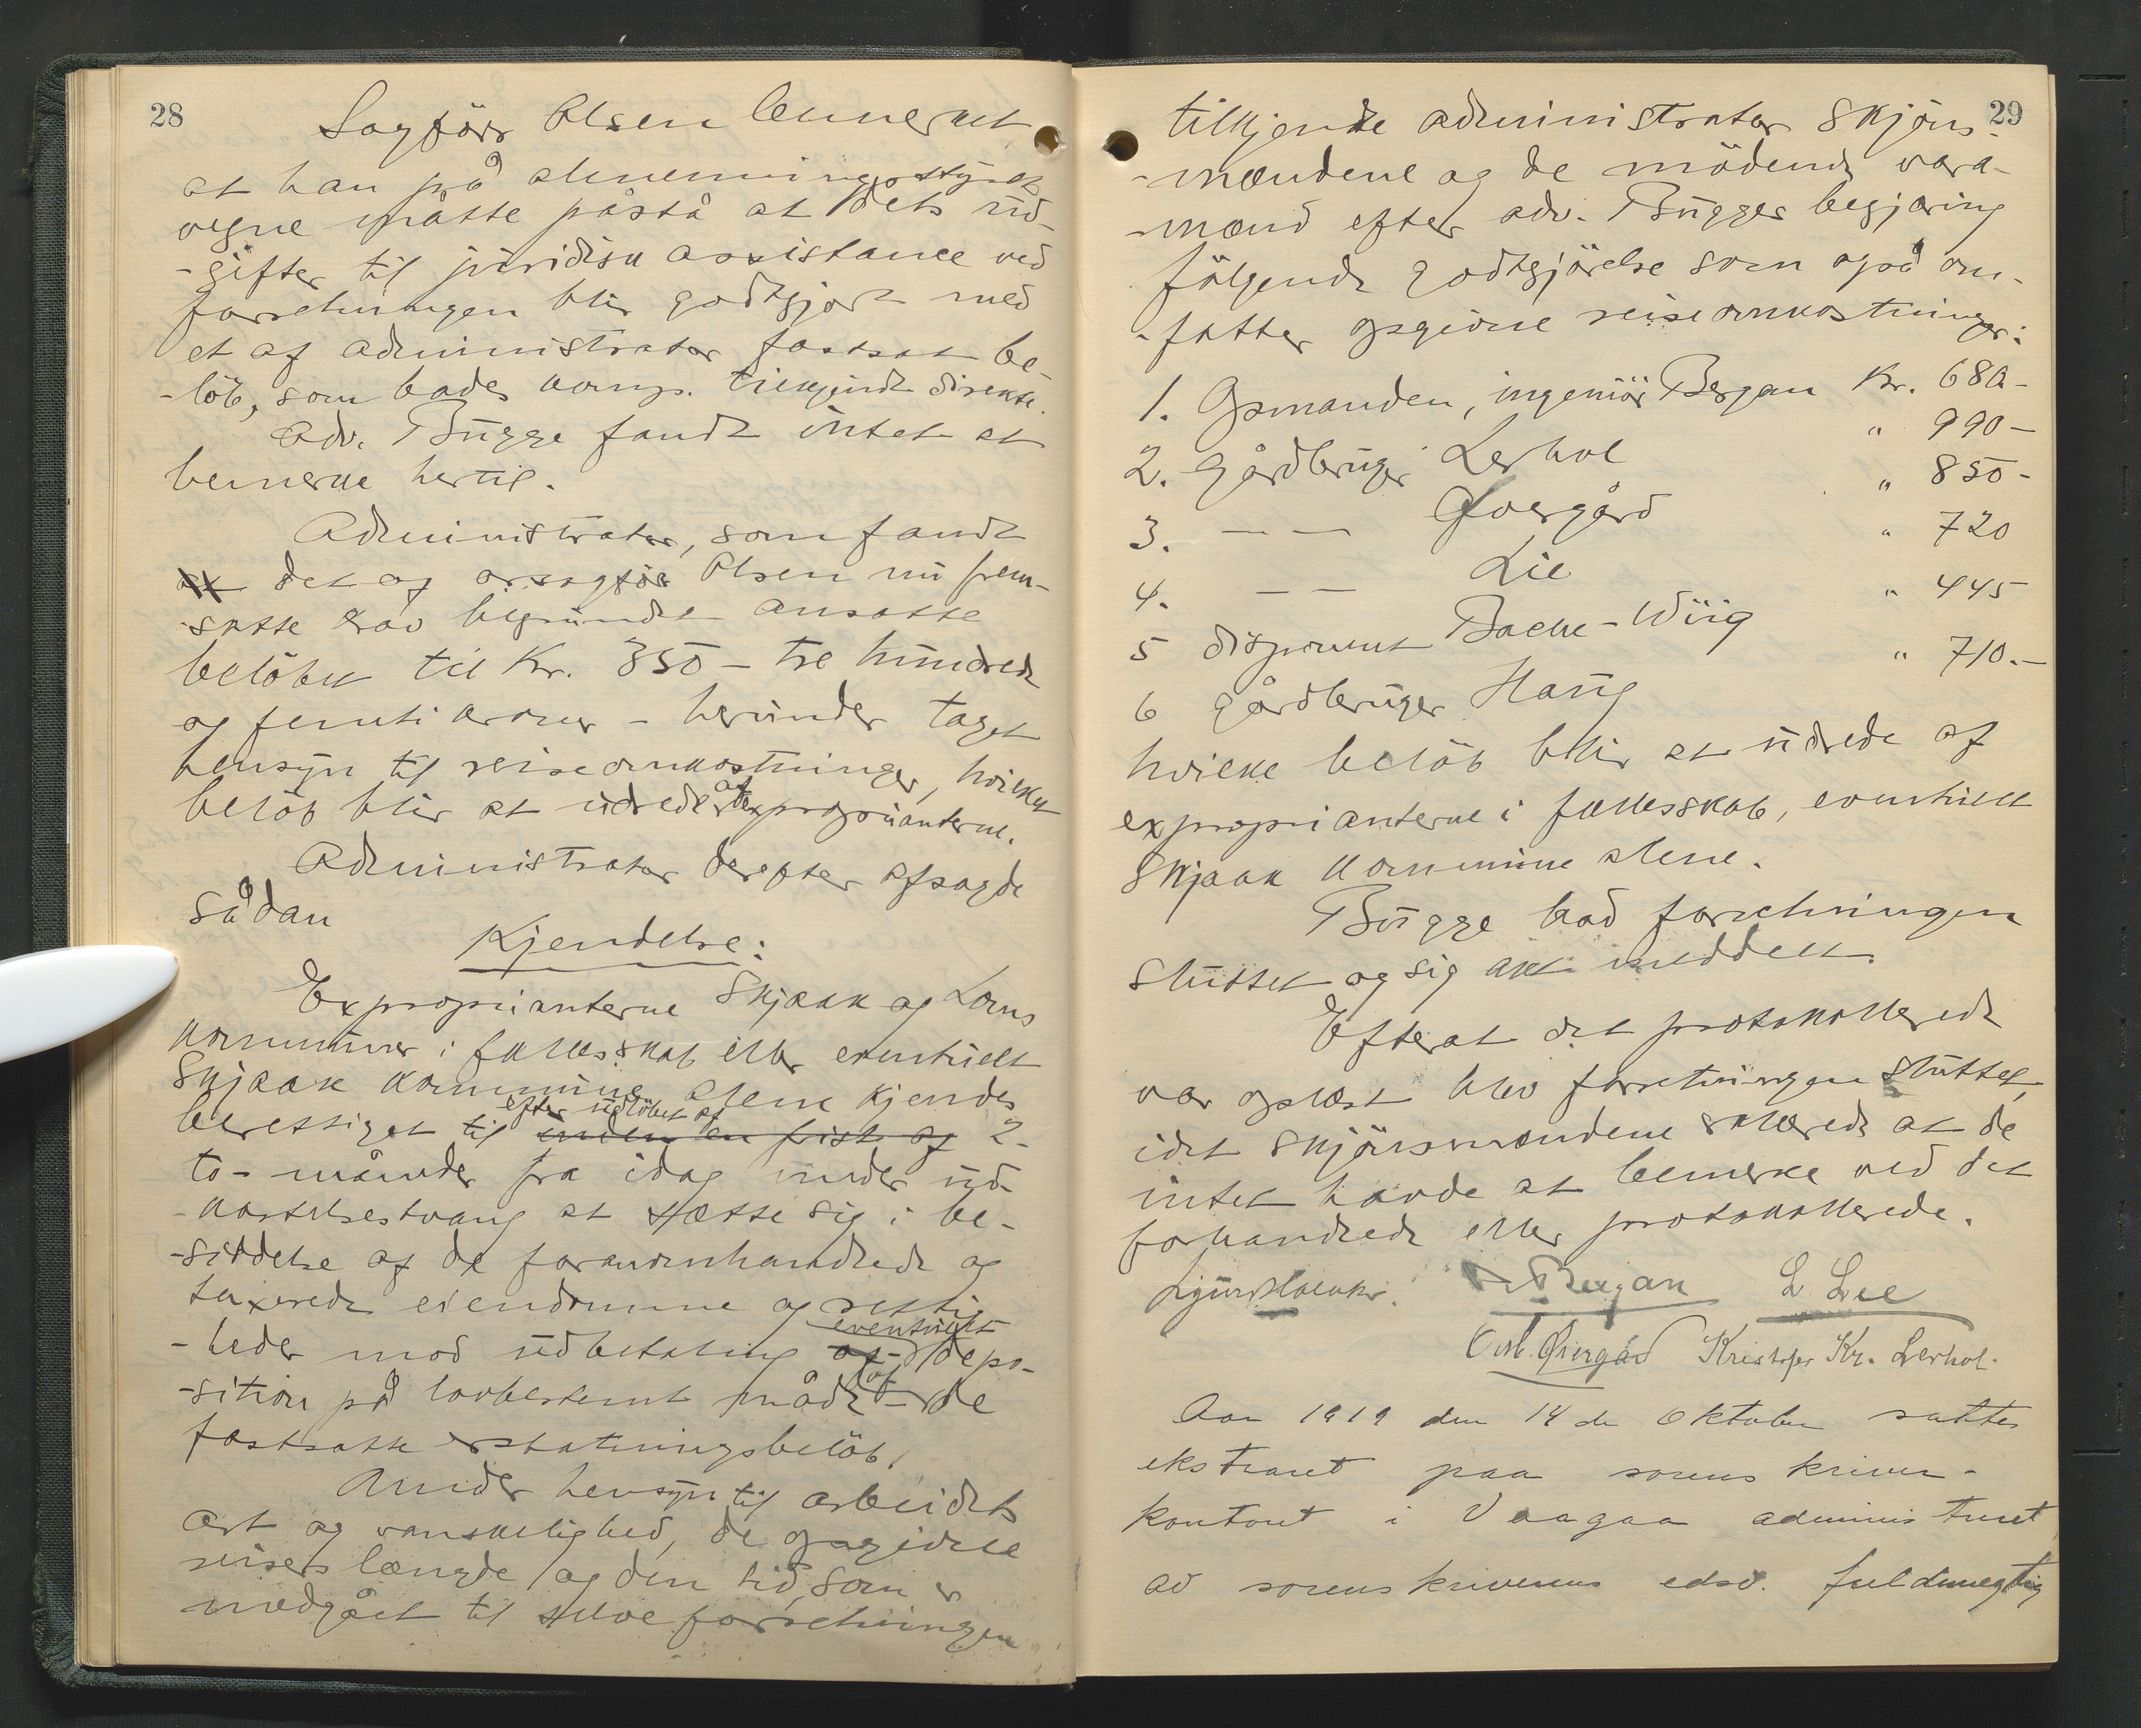 28
Sagfører Olsen bemerket
at han på almenningsstyrets
vegne måtte påstå at dets ud-
-gifter til juridisk assistance ved
forretningen blir godtgjort med
et af administrator fastsat be-
-løb, som bades komp. tilkjendt direkte.
Adv. Bugge fandt intet at
bemerke hertil.
Administrator, som fandt
det af orsagfør Olsen nu frem-
-satte krav begrundet ansatte
beløbet til Kr. 350 - tre hundrede
og femti kroner - herunder taget
hensyn til reiseomkostninger, hvilket
beløb blir at udrede af exproprianterne.
Administrator derefter afsagde
sådan
Kjendelse:
Exproprianterne Skjaak og Loms
kommuner i fællesskab eller eventuelt
Skjaak kommune alene kjendes
berettiget til efter udløbet af inden en frist af 2-
to - måneder fra idag under ud-
-kastelsestvang at sætte sig i be-
-siddelse af de foranomhandlede og
taxerede eiendomme og rettig-
-heder mod udbetaling eventuelt depo-
-sition på lovbestemt måde af de
fastsatte erstatningsbeløb.
Under hensyn til arbeidets
art og vanskelighed, de opgivne
reisers længde og den tid, som er
medgået til selve forretningen
29
tilkjendte administrator skjøns-
-mændene og de mødende vara-
-mænd efter adv. Bugges begjæring
følgende godtgjørelse som også om-
-fatter opgivne reiseomkostninger:
1. Opmanden, ingeniør Bergan Kr. 680-
2. Gårdbruger Lerhol " 990-
3. — — Øvergård " 850-
4. — — Lie " 720
5 disponent Bache-Wiig " 445
6 gårdbruger Haug " 710.-
hvilke beløb blir at udrede af
exproprianterne i fællesskab, eventuelt
Skjaak kommune alene.
Bugge bad forretningen
sluttet og sig akt meddelt.
Efterat det protokollerede
var oplæst blev forretningen sluttet,
idet skjønsmændene erklærede at de
intet havde at bemerke ved det
forhandlede eller protokollerede.
Bergan L Lie
Øvergård Kristofer Kr. Lerhol.
Aar 1919 den 14de Oktober sattes
ekstraret paa sorenskriver-
kontoret i Vaagaa administreret
av sorenskriverens edsv. fuldmegtig